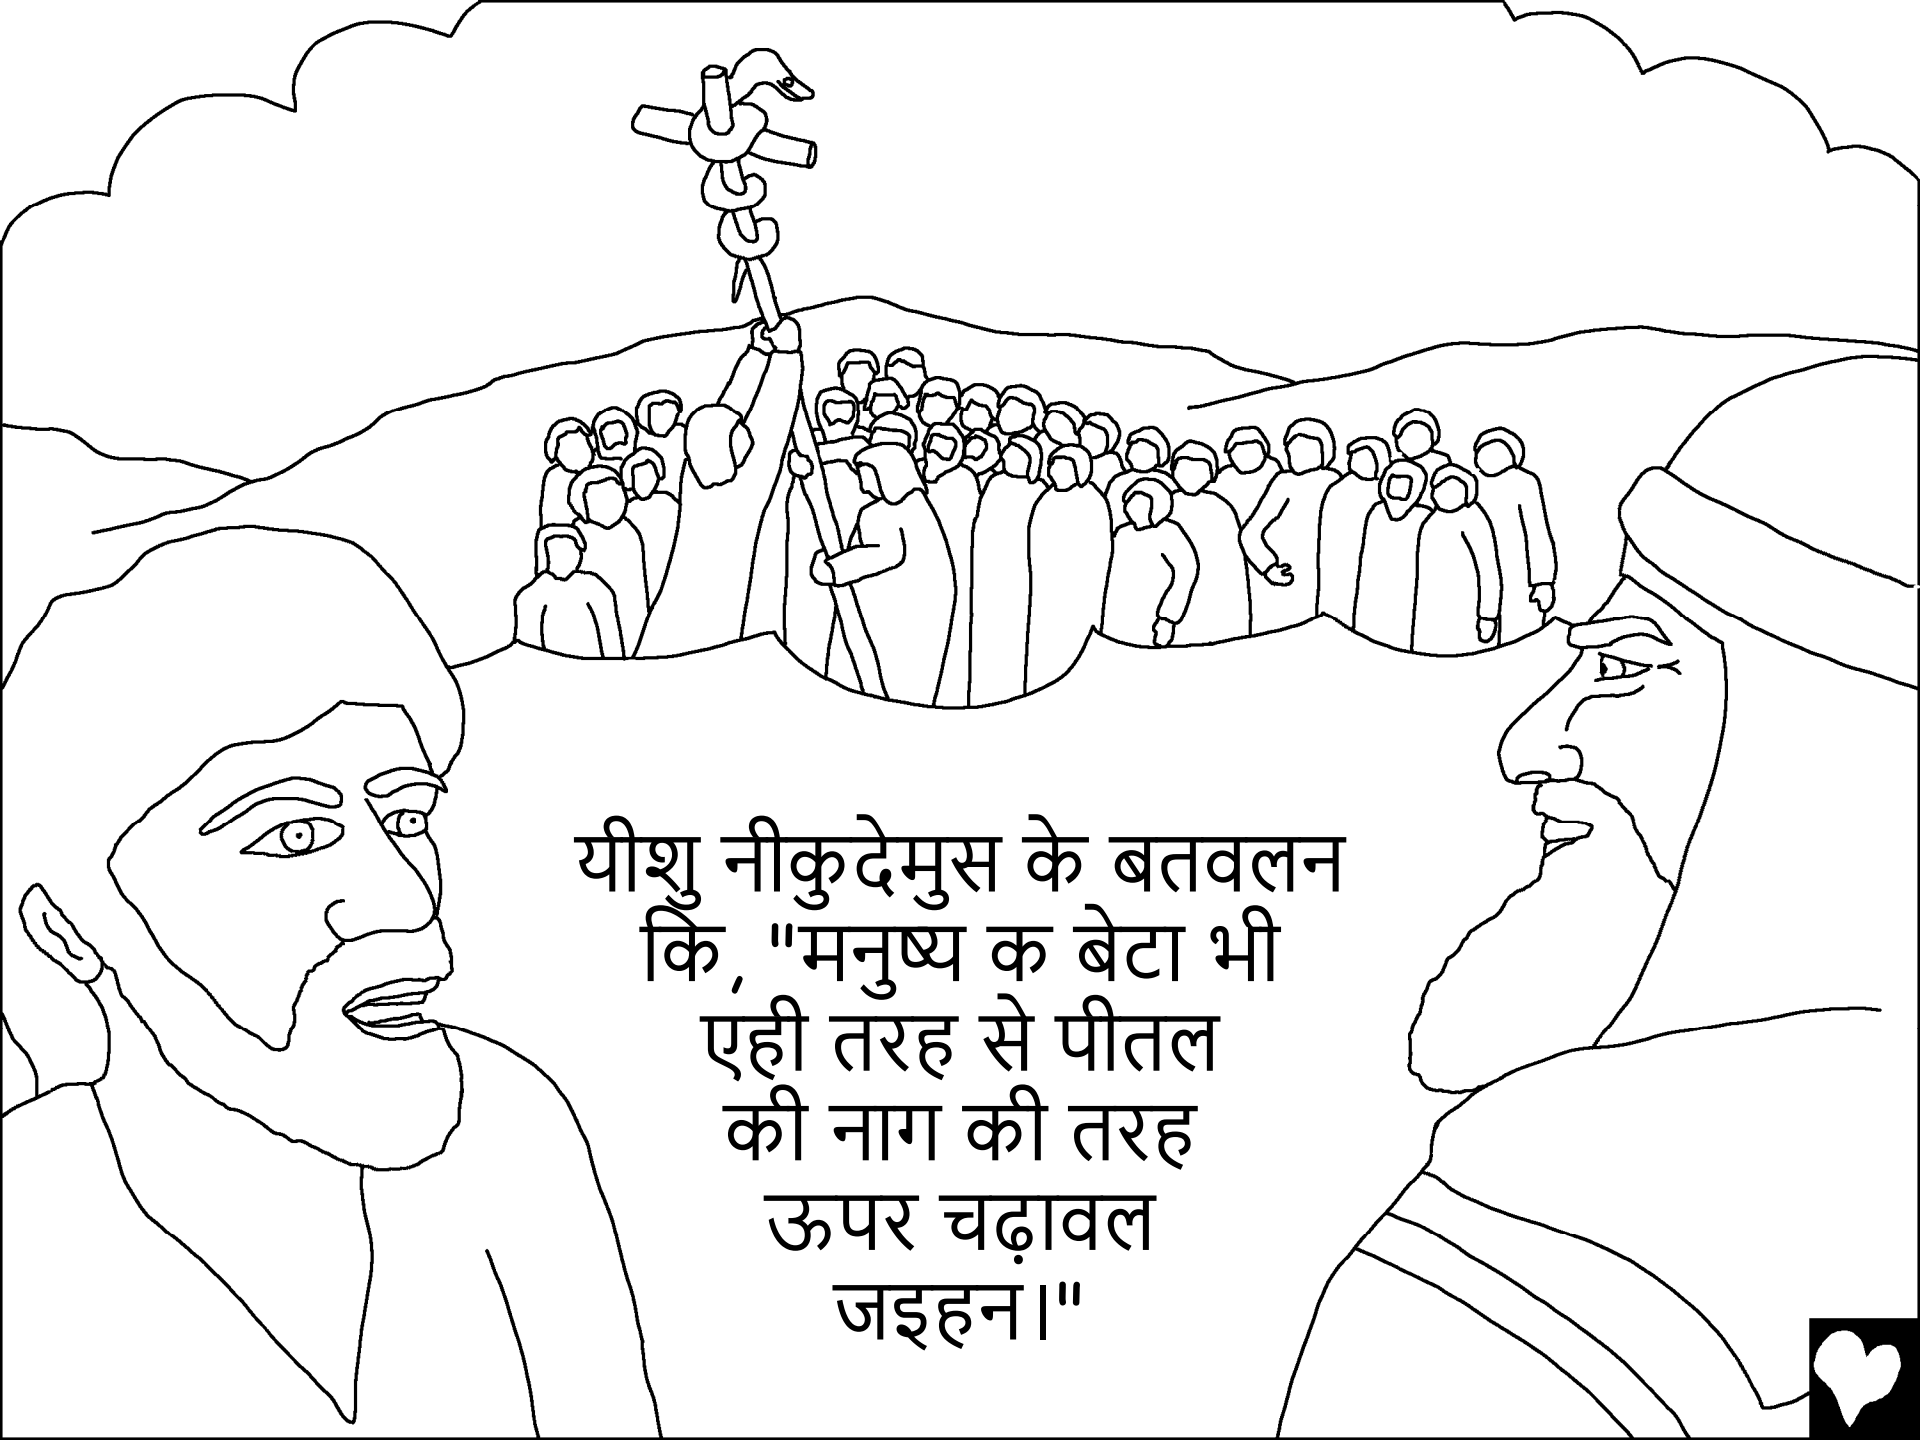 यीशु नीकुदेमुस के बतवलन
कि, "मनुष्य क बेटा भी
एही तरह से पीतल
की नाग की तरह
ऊपर चढ़ावल
जइहन।"